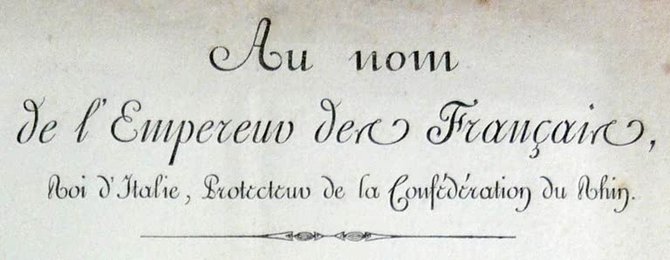 Au nom
de l'Empereur des Français,
Roi d'Italie, Protecteur de la Confédération du Rhin.